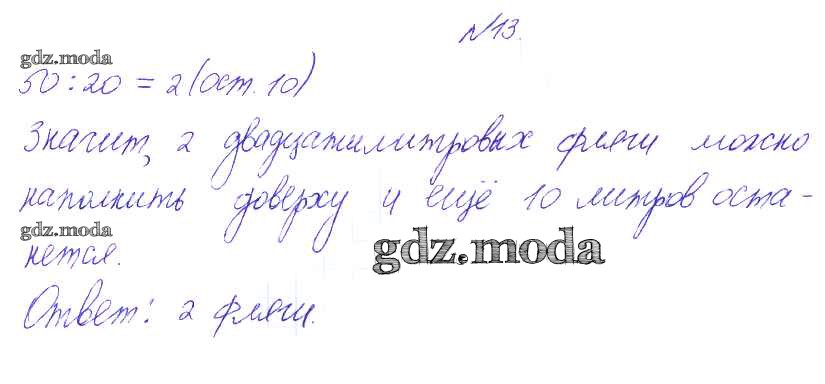 №13.
gdz.moda
50:20 = 2 (ост. 10)
Значит, 2 двадцатилитровых фляги можно
наполнить доверху и ещё 10 литров оста-
gdz.moda
нется.
gdz.moda
Ответ: 2 фляги.